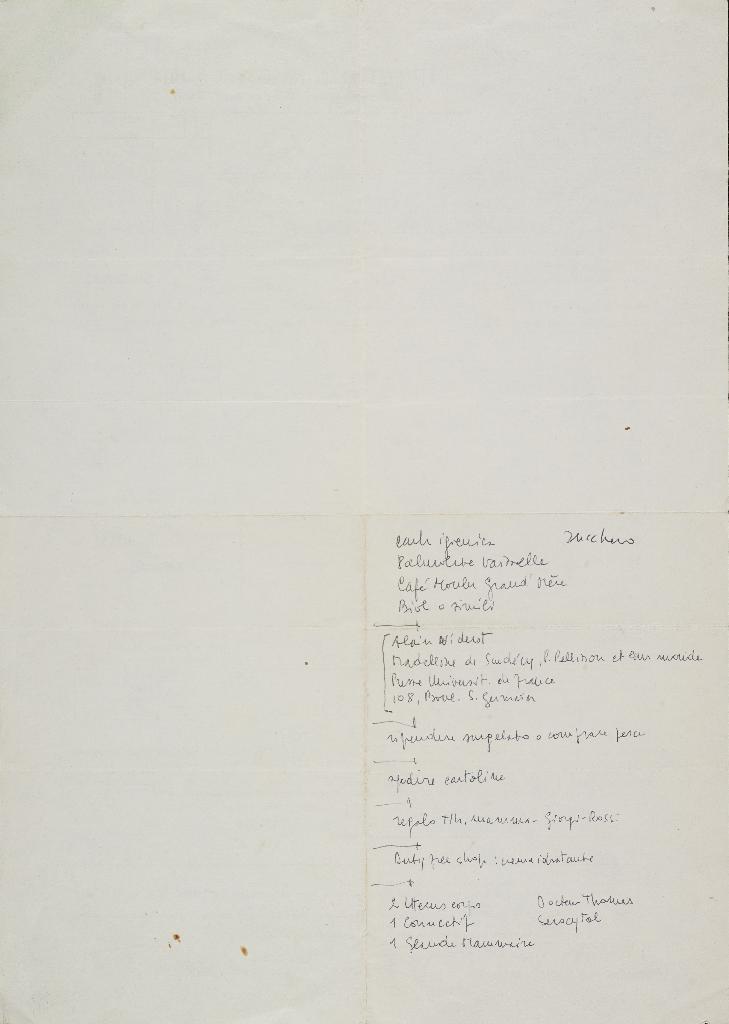 carta igienica zucchero
Palmolive vaisselle
Café Moulu Grand' Mère
Biol o simili
Alain Niderst
Madeleine de Scudéry, P. Pellisson et leur monde
Presse Universit. de France
108, Boul. S. Germain
riprendere surgelato o comprare pesce
spedire cartoline
regalo Th, mamma - Giorgi - Rossi
Duty free shop : crema idratante
2 Uterus corps Docteur Thomas
1 Connectif Serocytol
1 Glande Mammaire